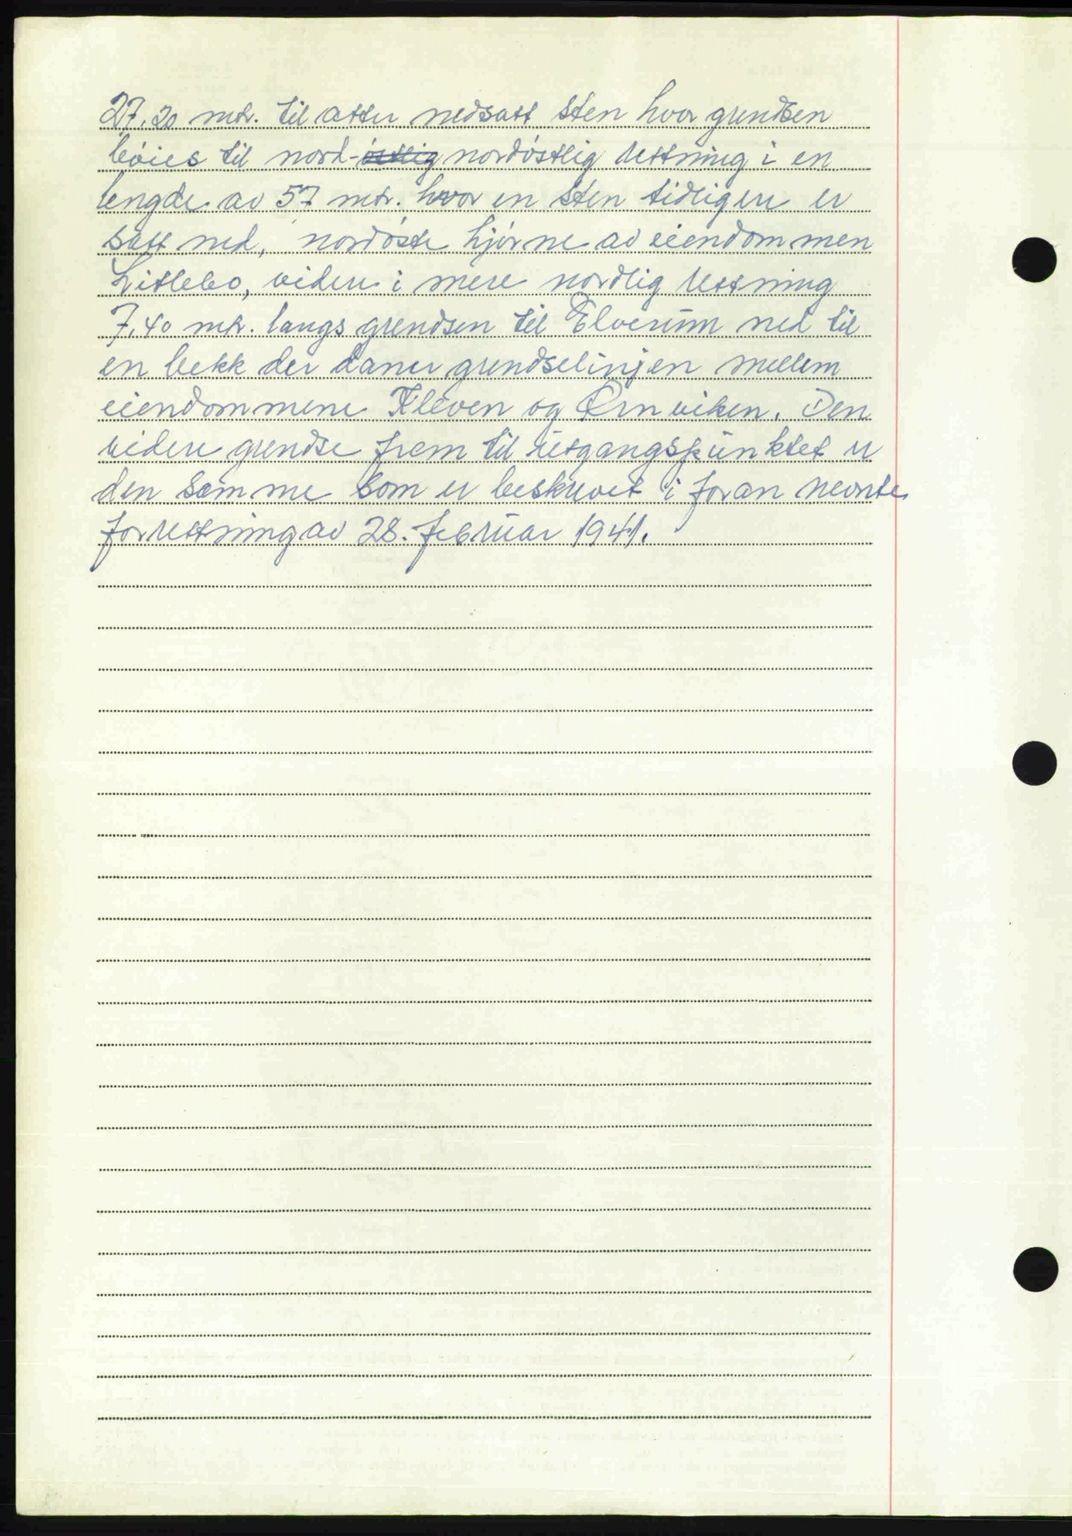 27.20 mtr. til atter nedsatt sten hvor grendsen
böies til nord-östlig nordöstlig rettning i en
lengde av 57 mtr. hvor en sten tidligere er
satt ned, nordöste hjörne av eiendommen
Litlebo, videre i mere nordlig rettning
7.40 mtr. langs grendsen til Elverum ned til
en bekk der daner grendselinjen mellem
eiendommene Kleven og Örnviken. Den
videre grendse frem til utgangspunktet er
den samme som er beskrevet i foran nevnte
forrettning av 28. februar 1941.